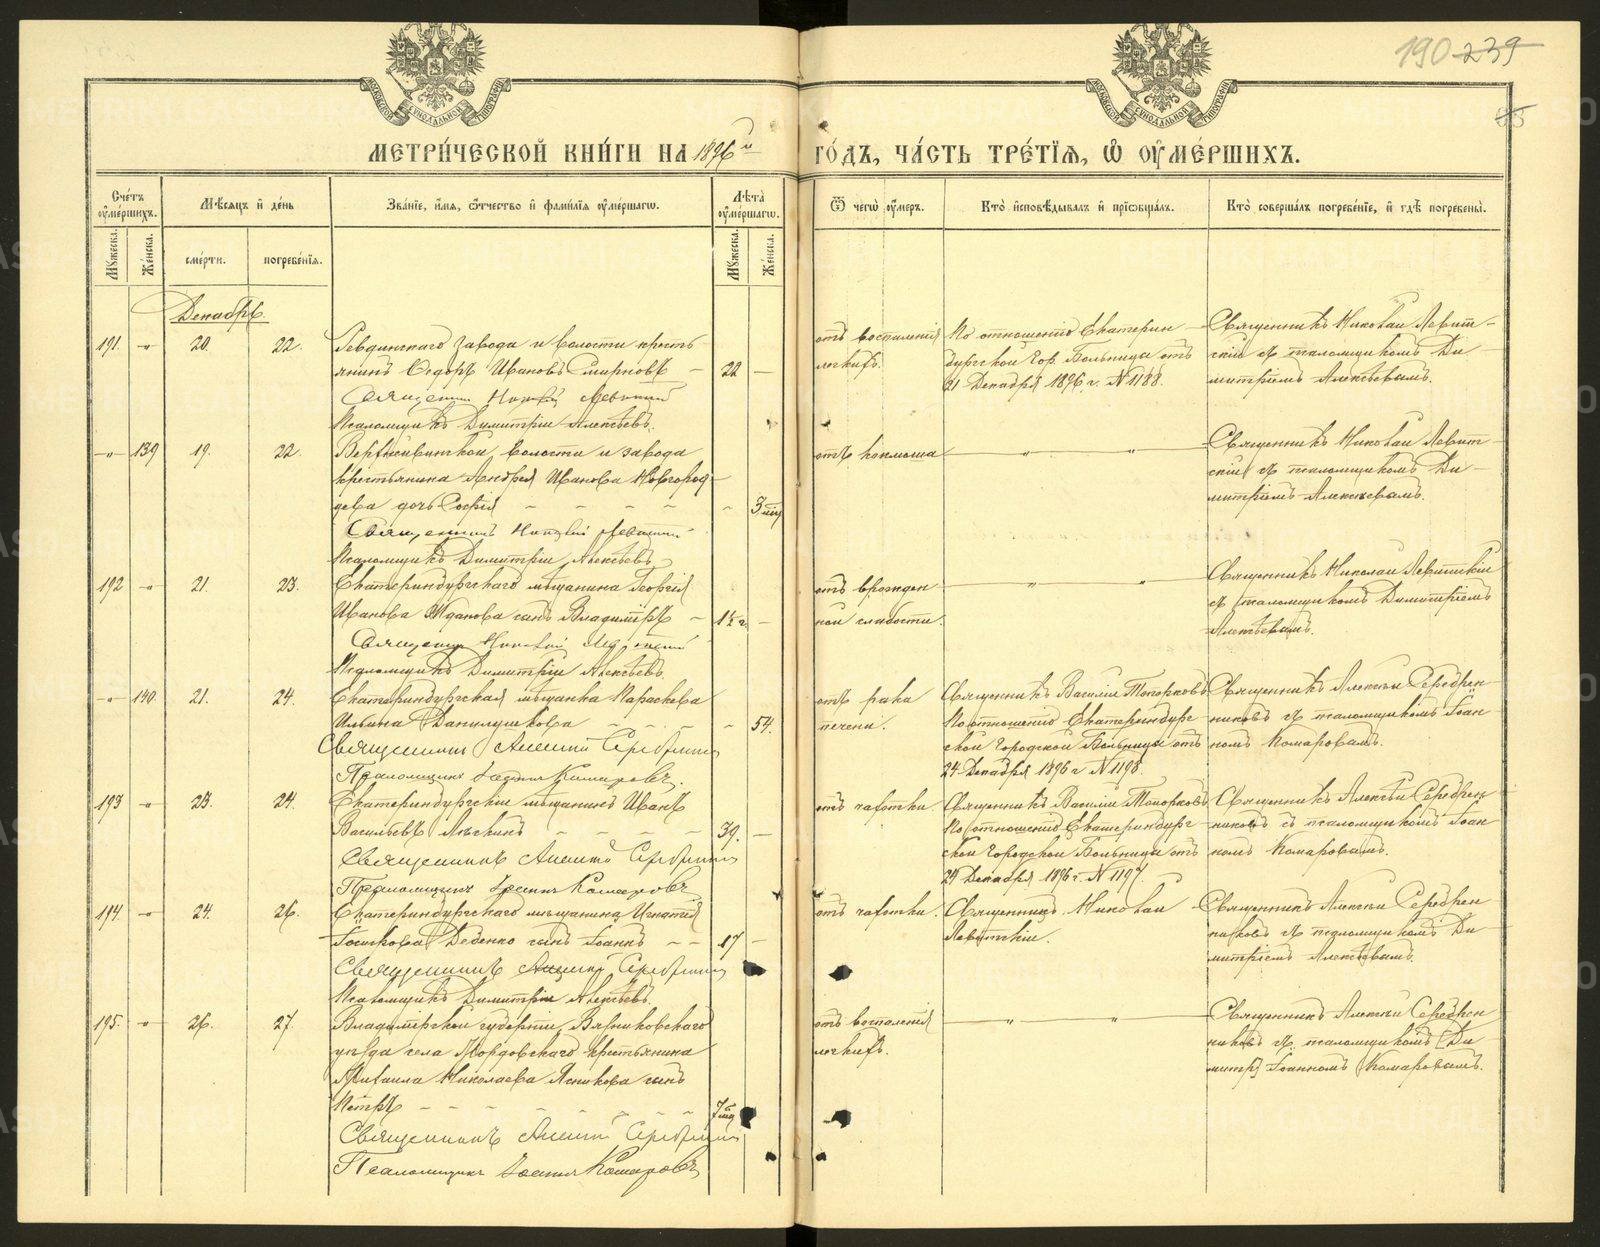 190 239
85
МОСКОВСКОЙ СѴНОДАЛЬНОЙ ТИПОГРАФІИ
МОСКОВСКОЙ СѴНОДАЛЬНОЙ ТИПОГРАФІИ
МЕТРИ́ЧЕСКОЙ КНИ́ГИ НА 1896й ГО́ДЪ, ЧА́СТЬ ТРЕ́ТІѦ, Ѡ҆ ОУ҆МЕ́РШИХЪ.
Сче́тъ оу҆ме́ршихъ.
Мѣ́сѧцъ и҆ де́нь
Зва́нїе, и҆́мѧ, ѻ҆́тчество и҆ фами́лїѧ оу҆ме́ршагѡ.
Лѣ̀та оу҆ме́ршагѡ.
Ѿ чегѡ̀ оу҆́мєръ.
Кто̀ и҆сповѣ́дывалъ и҆ прїѡбща́лъ.
Кто̀ соверша́лъ погребе́нїе, и҆ гдѣ̀ погребены̀.
Мꙋ́жеска.
Же́нска.
сме́рти.
погребе́нїѧ.
Мꙋ́жеска.
Же́нска.
Декабрь.
191. -"- 20. 22. Ревдинскаго завода и волости кресть-
янинъ Ѳедоръ Ивановъ Смирновъ - 22 —
Священник Николай Левитский
Псаломщикъ Димитрій Алексѣевъ.
отъ воспаленія
легкихъ.
По отношенію Екатерин-
бургской Гор. Больницы отъ
21 Декабря 1896 г. №1188.
Священникъ Николай Левит-
скій съ псаломщикомъ Ди-
митріемъ Алексѣевымъ.
-"- 139 19. 22. волости и завода
крестьянина Андрея Иванова Новгород-
цева дочь Софія - - - - - - 3 мѣс.
Священникъ Николай Левитский
Псаломщикъ Димитрій Алексѣевъ
отъ коклюша — " — " —
Священникъ Николай Левит-
скій съ псаломщикомъ Ди-
митріемъ Алексѣевымъ.
192 -"- 21. 23. Екатеринбургскаго мѣщанина Георгія
Иванова Жданова сынъ Владиміръ - 1½ г. —
Священник Николай Левитский
Псаломщикъ Димитрій Алексѣевъ.
отъ врожден
ной слабости.
— " — " —
Священникъ Николай Левитскій
съ псаломщикомъ Димитріемъ
Алексѣевымъ.
-"- 140. 21. 24. Екатеринбургская мѣщанка Параскева
Ильина Данилушкова - - - - - 54.
Священникъ Алексій Серебренни
Псаломщикъ Іоаннъ Комаровъ.
отъ рака
печени.
Священникъ Василій Топорковъ
По отношенію Екатеринбург
ской Городской Больницы отъ
24 Декабря 1896 г №1198.
Священникъ Алексѣй Серебрен
никовъ съ псаломщикомъ Іоан
номъ Комаровымъ.
193 -"- 23. 24. Екатеринбургскій мѣщанинъ Иванъ
Васильевъ - - - - 39. —
Священникъ Алексій Серебренни
Псаломщикъ Іоаннъ Комаровъ
отъ чахотки.
Священникъ Василій Топорковъ
По отношенію Екатеринбург
ской Городской Больницы отъ
24 Декабря 1896 г. №1197.
Священникъ Алексѣй Серебрен
никовъ съ псаломщикомъ Іоан
номъ Комаровымъ.
194 -"- 24. 26. Екатеринбургскаго мѣщанина Игнатія
Деденко сынъ Іоаннъ - - 17 —
Священникъ Алексій Серебренни
Псаломщикъ Димитрій Алексѣевъ.
отъ чахотки.
Священникъ Николай
Левитскій.
Священникъ Алексѣй Серебрен
никовъ съ псаломщикомъ Ди-
митріемъ Алексѣевымъ.
195. -"- 26. 27. Владимірской губерніи, Вязниковскаго
уѣзда села Мордовскаго крестьянина
Михаила Николаева сынъ
Петръ - - - - - - - 7 мѣс.
Священникъ Алексій Серебренни
Псаломщикъ Іоаннъ Комаровъ
отъ воспаленія
легкихъ.
— " — " —
Священникъ Алексѣй Серебрен
никовъ съ псаломщикомъ [Ди-
митр] Іоанномъ Комаровымъ.